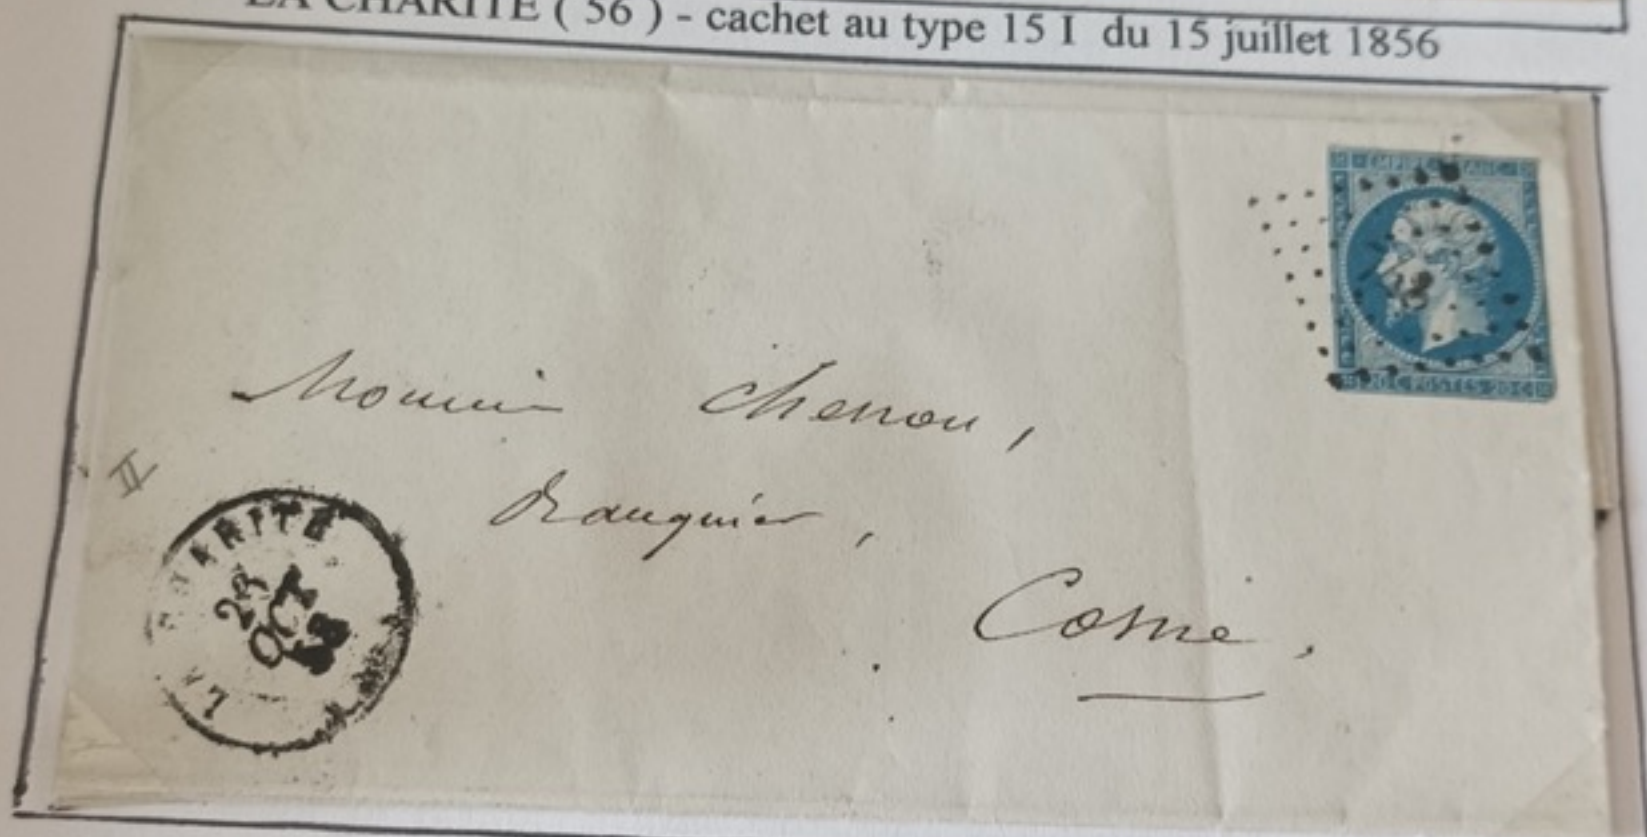 LA CHARITE ( 56 ) - cachet au type 15 I du 15 juillet 1856
EMPIRE FRANC
20 C POSTES 20 C
Monsieur Chenou,
Banquier,
Cosne.
II
LA CHARITE
23
OCT